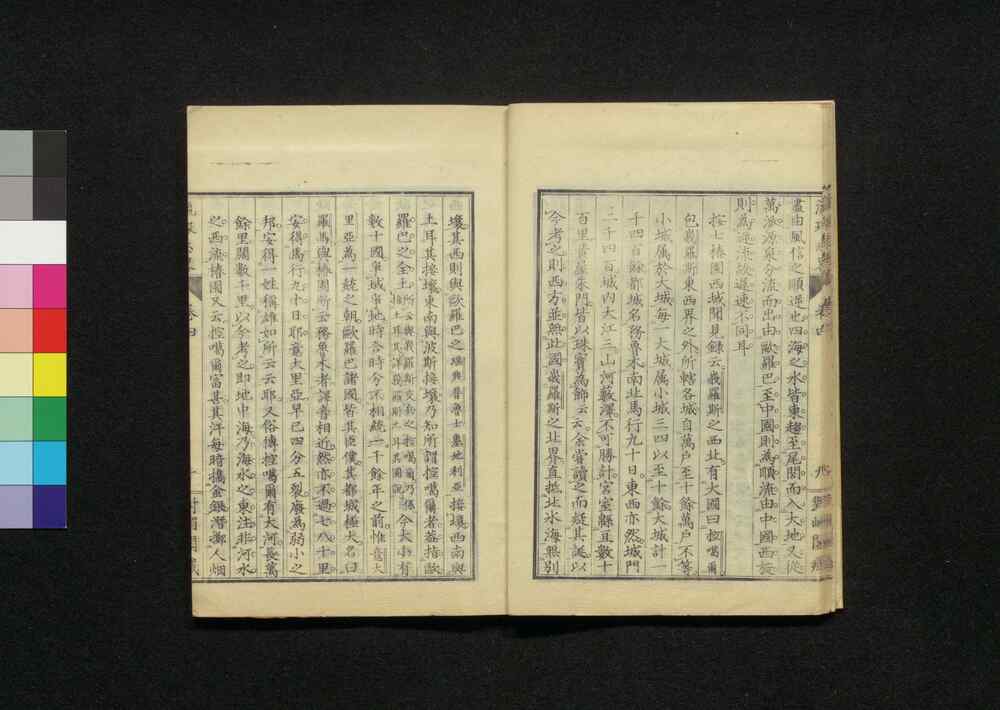 盡由風信之順逆也四海之水皆東趨至尾閭而入大地又從
萬派源泉分流而出由歐羅巴至中國則為順流由中國西旋
則為逆流故遲速不同耳
按七椿園西域聞見錄云峩羅斯之西北有大國曰控噶爾
包峩羅斯東西界之外所轄各城自萬戶至十餘萬戶不等
小城屬於大城每一大城屬小城三四以至十餘大城計一
千四百餘都城名務魯木南北馬行九十日東西亦然城門
二千四百城內大江三山河藪澤不可勝計宮室緜亙數十
百里黃屋朱門皆以珠寶為飾云云余嘗讀之而疑其誕以
今考之則西方並無此國峩羅斯之北界直抵北冰海無別
壤其西則與歐羅巴之瑞典普魯士墺地利亞接壤西南與
土耳其接壤東南與波斯接壤乃知所謂控噶爾者葢指歐
羅巴之全土 今大小有
數十國率城率地時合時分不相統一千餘年之前惟意大
里亞為一統之朝歐羅巴諸國皆其臣僕其都城極大名曰
羅馬與椿園所云務魯木者譯音相近然亦不過七八十里
安得馬行九十日耶意大里亞早已四分五裂廢為弱小之
邦安得一姓稱雄如所云云耶又俗傳控噶爾有大河長萬
餘里闊數千里以今考之即地中海乃海水之東注非河水
之西流椿園又云控噶爾富甚其汗每時攜金銀潛擲人烟